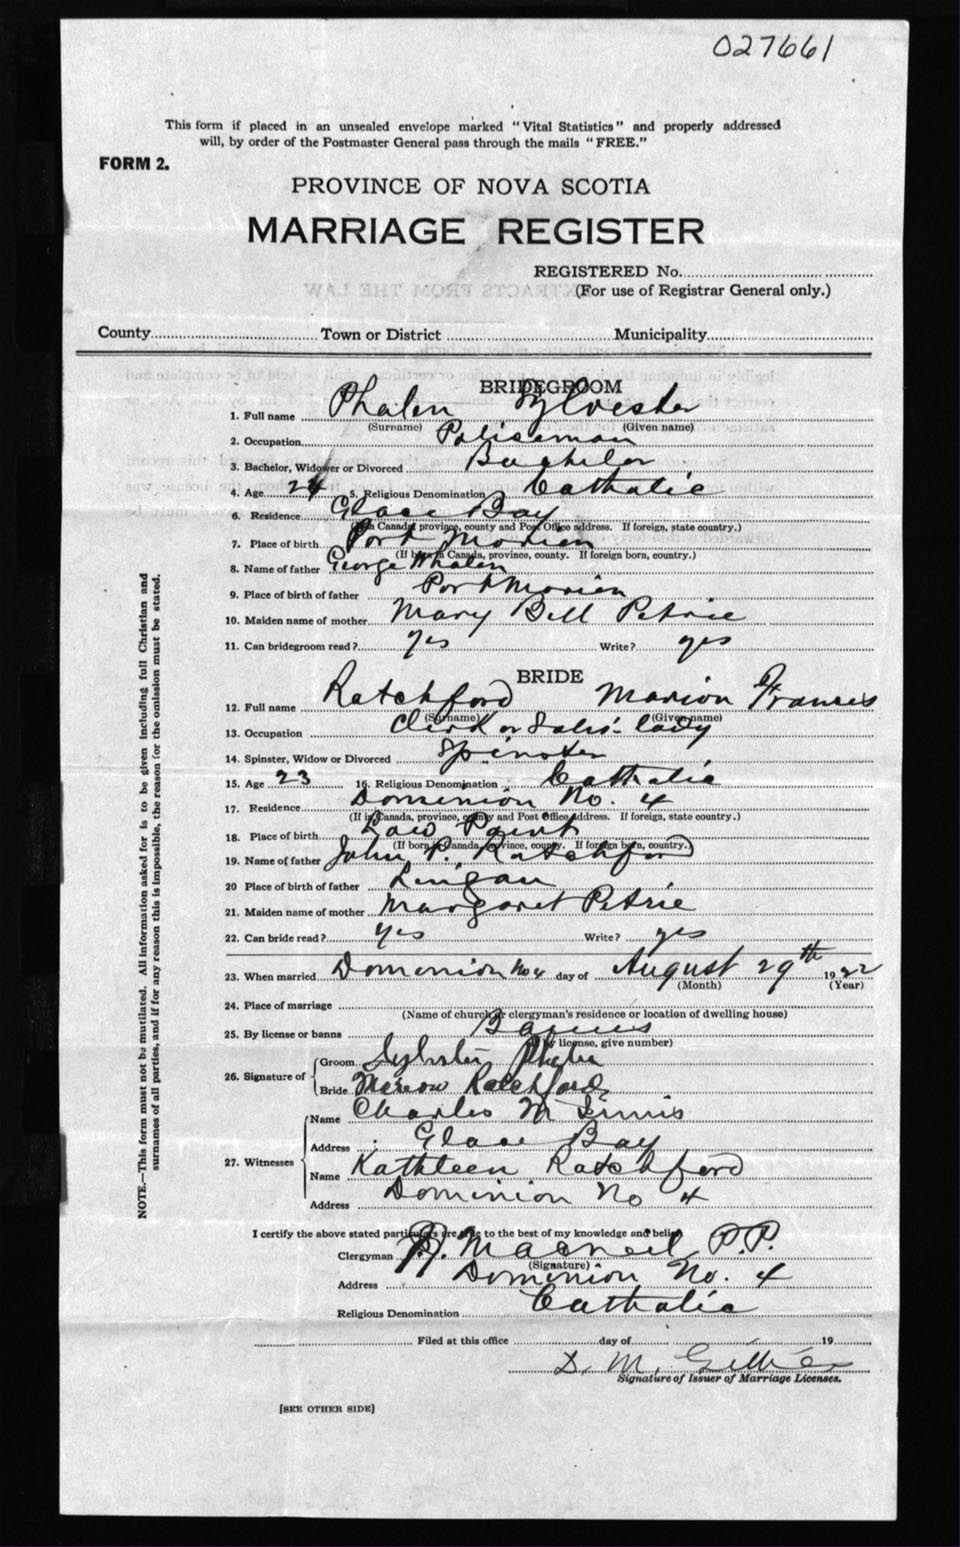 027661
This form if placed in an unsealed envelope marked "Vital Statistics" and properly addressed
will, by order of the Postmaster General pass through the mails "FREE."
FORM 2.
PROVINCE OF NOVA SCOTIA
MARRIAGE REGISTER
REGISTERED No.
(For use of Registrar General only.)
County Town or District Municipality
BRIDEGROOM
1. Full name Phalen Sylvester
(Surname) (Given name)
2. Occupation Policeman
3. Bachelor, Widower or Divorced Bachelor
4. Age 24 5. Religious Denomination Catholic
6. Residence Glace Bay
(If in Canada, province, county and Post Office address. If foreign, state country.)
7. Place of birth Port Morien
(If born in Canada, province, county. If foreign born, country.)
8. Name of father George Whalen
9. Place of birth of father Port Morien
10. Maiden name of mother Mary Bell Petrie
11. Can bridegroom read? yes Write? yes
BRIDE
12. Full name Ratchford Marion Frances
(Surname) (Given name)
13. Occupation Clerk or Sales-lady
14. Spinster, Widow or Divorced Spinster
15. Age 23 16. Religious Denomination Catholic
17. Residence Dominion No. 4
(If in Canada, province, county and Post Office Address. If foreign, state country.)
18. Place of birth Low Point
(If born in Canada, province, county. If foreign born, country.)
19. Name of father John P. Ratchford
20 Place of birth of father Lingan
21. Maiden name of mother Margaret Petrie
22. Can bride read? yes Write? yes
23. When married Dominion No 4 day of August 29th 1922
(Month) (Year)
24. Place of marriage
(Name of church or clergyman's residence or location of dwelling house)
25. By license or banns Banns
(By license, give number)
26. Signature of Groom Sylvester Phalen
Bride Marion Ratchford
27. Witnesses Name Charles
Address Glace Bay
Name Kathleen Ratchford
Address Dominion No 4
I certify the above stated particulars are true to the best of my knowledge and belief
Clergyman MacNeil P.P.
(Signature)
Address Dominion No. 4
Religious Denomination Catholic
Filed at this office day of 19
D. M.
Signature of Issuer of Marriage Licenses.
[SEE OTHER SIDE]
NOTE.—This form must not be mutilated. All information asked for is to be given including full Christian and
surnames of all parties, and if for any reason this is impossible, the reason for the omission must be stated.